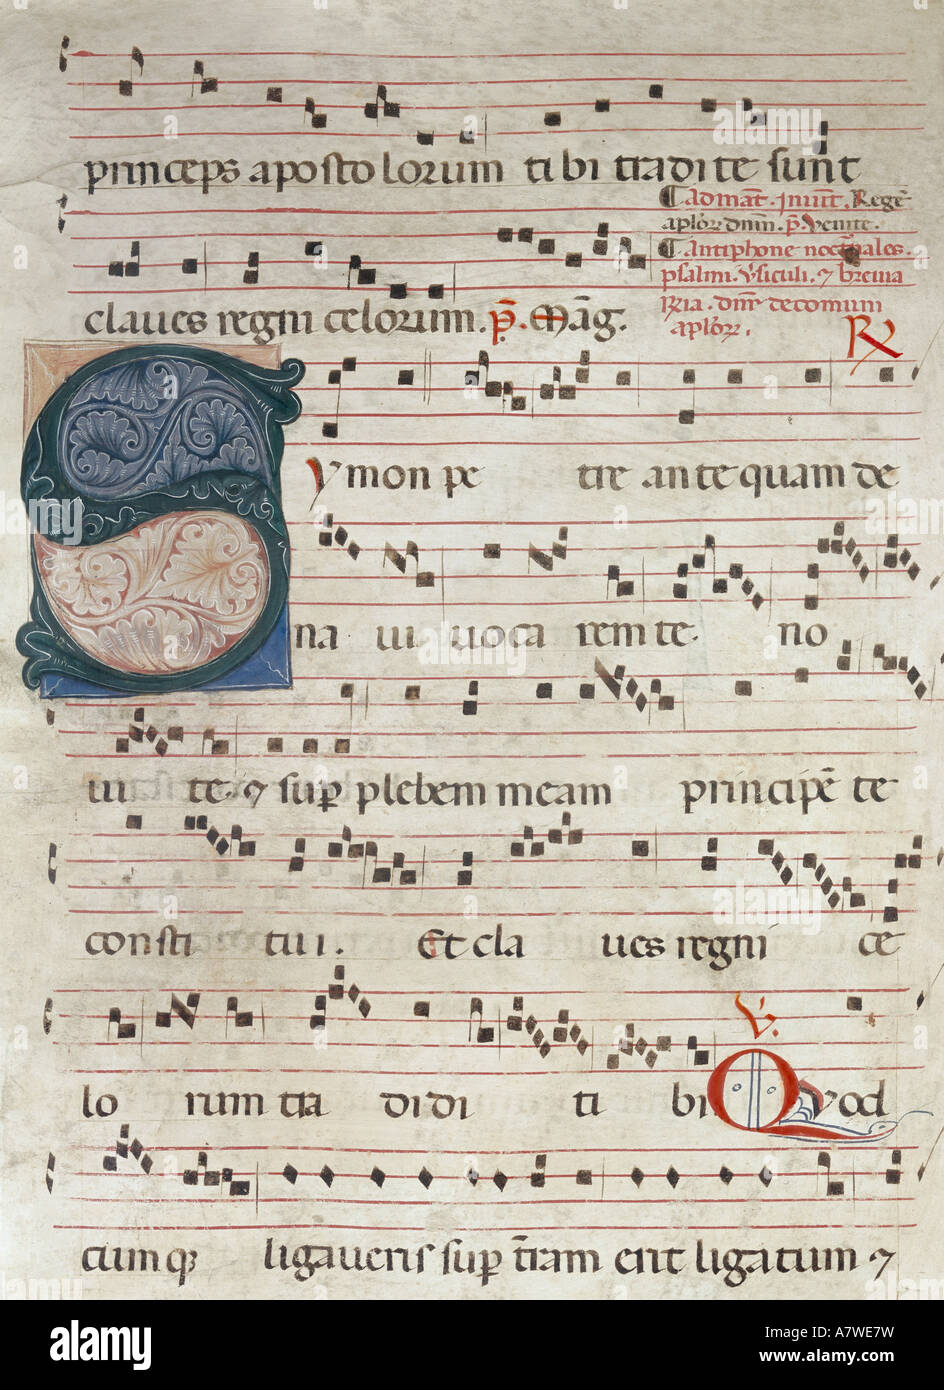 princeps apostolorum tibi tradite sunt
Cadmat͞. juuit͞. Rege͞
aplor͞ dnm͞. p͞. venite.
Cantiphone nocturnales.
psalmi. v͞siculi. ⁊ brevia
R͞ria. dnr͞ de comuni
aplor͞.
claues regni celorum. p͞. Ma͞g.
R̷
Symon petre antequam de
na ui uocarem te. no
ui te. ⁊ sup͞ plebem meam principe͞ te
constitui. Et claues regni ce
lorum tradidi tibi V̷. Quod
cumq; ligaueris sup͞ t͞ram erit ligatum ⁊
alamy
Image ID: A7WE7W
www.alamy.com